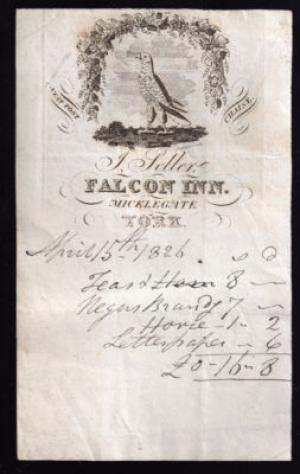 NEAT POST CHAISE.
J. Seller
FALCON INN.
MICKLEGATE
YORK.
April 15th 1826. s d
Teas & Ham 8 —
Negus Brandy 7 —
Horse - 1 - 2
Letterpaper — 6
£0-16-8